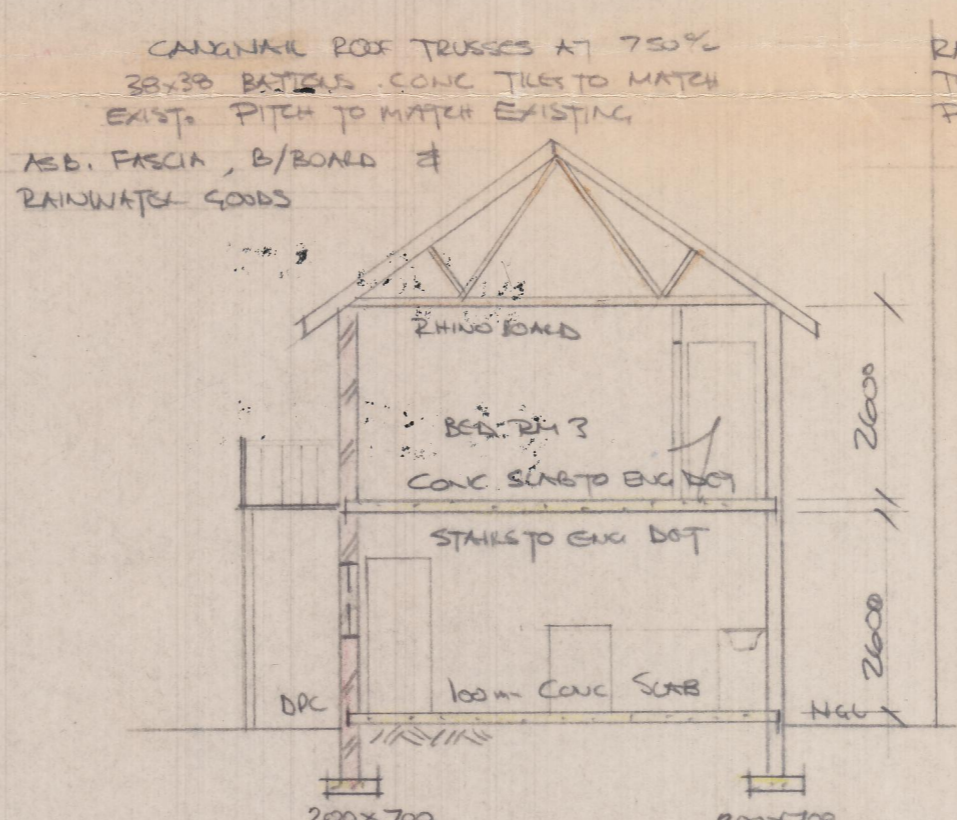 CANGNAIL ROOF TRUSSES AT 750%
38x38 BATTENS. CONC TILES TO MATCH
EXIST. PITCH TO MATCH EXISTING
ASB. FASCIA, B/BOARD &
RAINWATER GOODS
RHINO BOARD
2600
BED. RM 3
CONC. SLAB TO ENG DET
STAIRS TO ENG DET
2600
100m- CONC SLAB
DPC
NGL
200x700